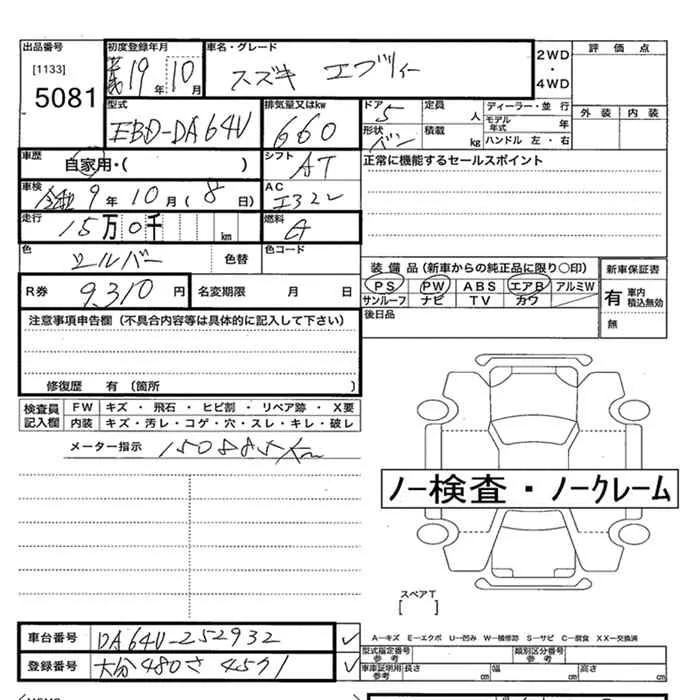 出品番号 初度登録年月 車名・グレード 評価点
[1133] 5081
19年 10月
スズキ エブリィ
2WD・4WD
外装 内装
型式 EBD-DA64V
排気量又はkw 660
ドア 5 定員 人 ディーラー・並行
形状 バン 積載 kg モデル年式 年
ハンドル 左・右
車歴 自家用・( )
シフト AT
正常に機能するセールスポイント
車検 令和9年10月(8日)
AC エアコン
走行 15万0千 km
燃料
色 シルバー 色替
色コード
装備品(新車からの純正品に限り○印) 新車保証書
PS PW ABS エアB アルミW
サンルーフ ナビ TV カワ
有 車内積込無効
無
R券 9,310円 名変期限 月 日
後日品
注意事項申告欄(不具合内容等は具体的に記入して下さい)
修復歴 有〔箇所 〕
検査員記入欄
FW キズ・飛石・ヒビ割・リペア跡・X要
内装 キズ・汚レ・コゲ・穴・スレ・キレ・破レ
メーター指示 150885km
ノー検査・ノークレーム
スペアT
[ ]
車台番号 DA64V-252932
登録番号 大分480さ4571
A-キズ E-エクボ U-凹み W-補修跡 S-サビ C-腐食 XX-交換済
型式指定番号 参考 類別区分番号 参考
車庫証明用 参考 長さ cm 幅 cm 高さ cm